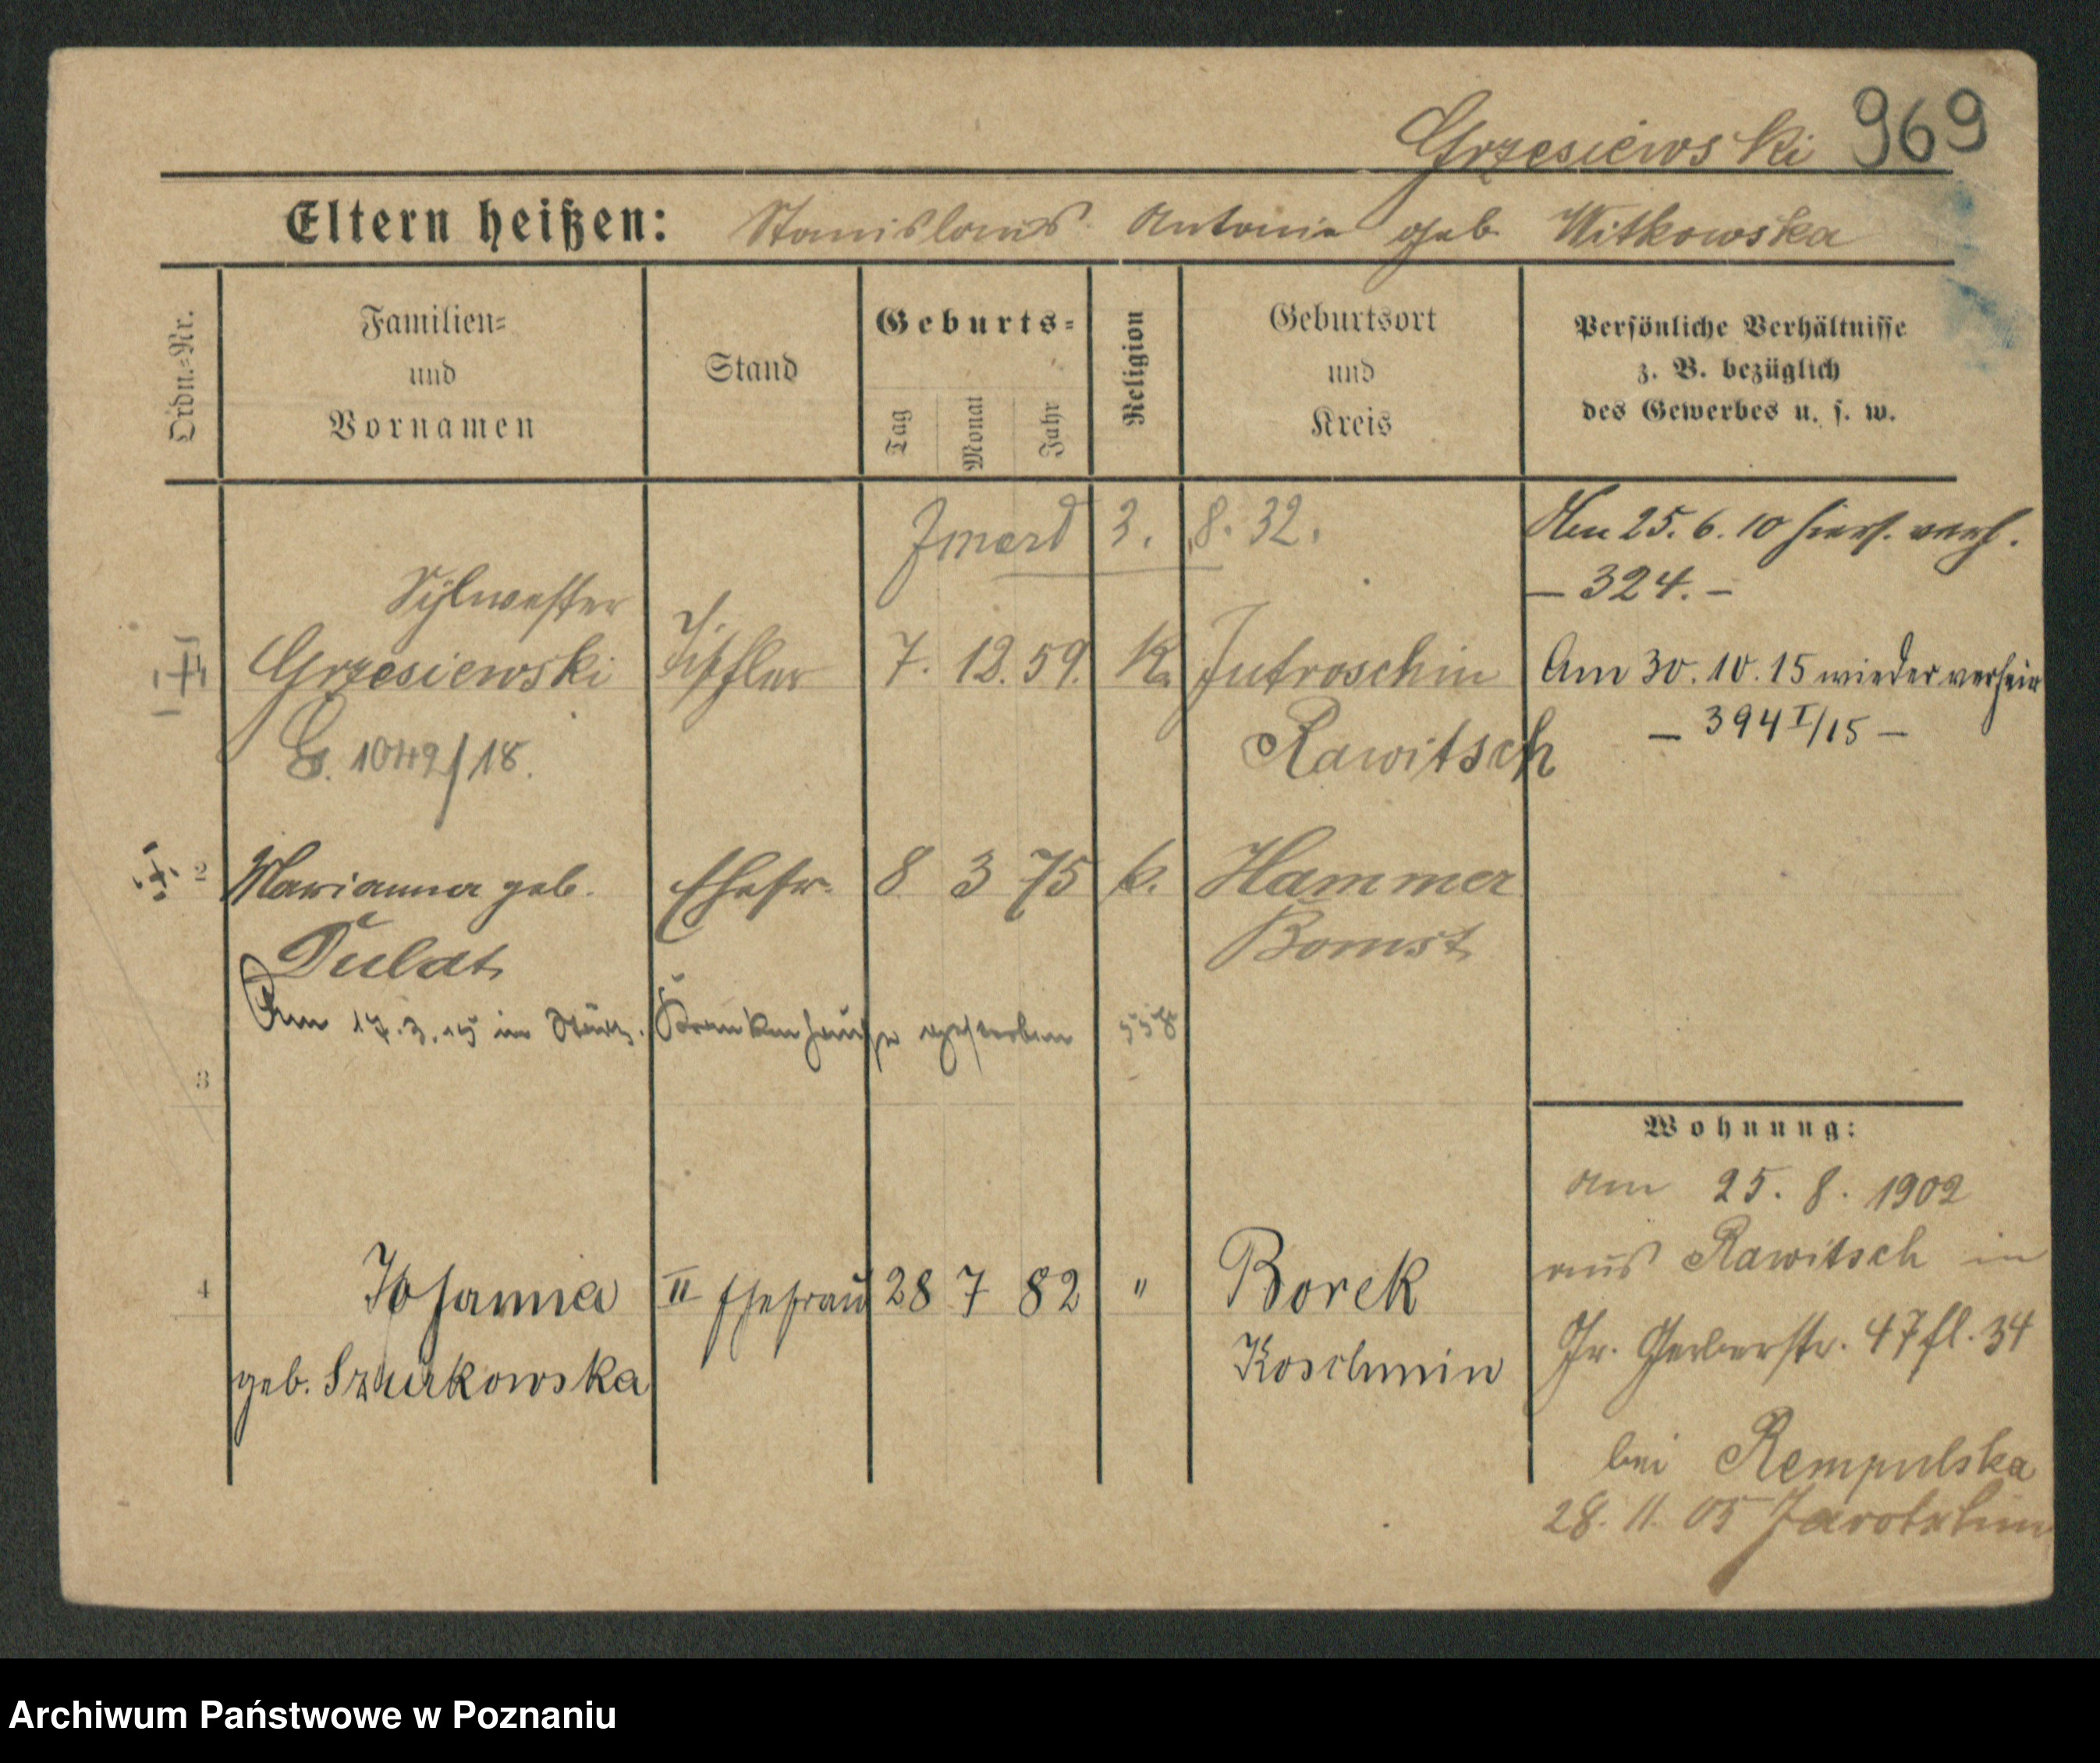 Grzesiewski 969
Eltern heißen: Stanislaus Antonie geb. Witkowska
Ordn.=Nr.
Familien=
und
Vornamen
Stand
Geburts=
Tag
Monat
Jahr
Religion
Geburtsort
und
Kreis
Persönliche Verhältnisse
z. B. bezüglich
des Gewerbes u. s. w.
Zmarł 3. 8. 32.
Am 25. 6. 10 hiers. verh.
— 324. —
Sylwester
Grzesiewski Tischler 7. 12. 59. K. Jutroschin
Rawitsch
Am 30. 10. 15 wieder verheir
— 394 I/15 —
G. 1049/18.
2 Marianna geb. Ehefr. 8. 3 75 k. Hammer
Duldt Bomst
Am 17. 3. 15 in Städt. Krankenhause gestorben 558
3
4 Johanna II Ehefrau 28 7 82 " Borek
geb. Szurkowska Koschmin
Wohnung:
am 25. 8. 1902
aus Rawitsch in
Gr. Gerberstr. 47 fl. 34
bei Rempulska
28. 11. 05 Jarotschin
Archiwum Państwowe w Poznaniu